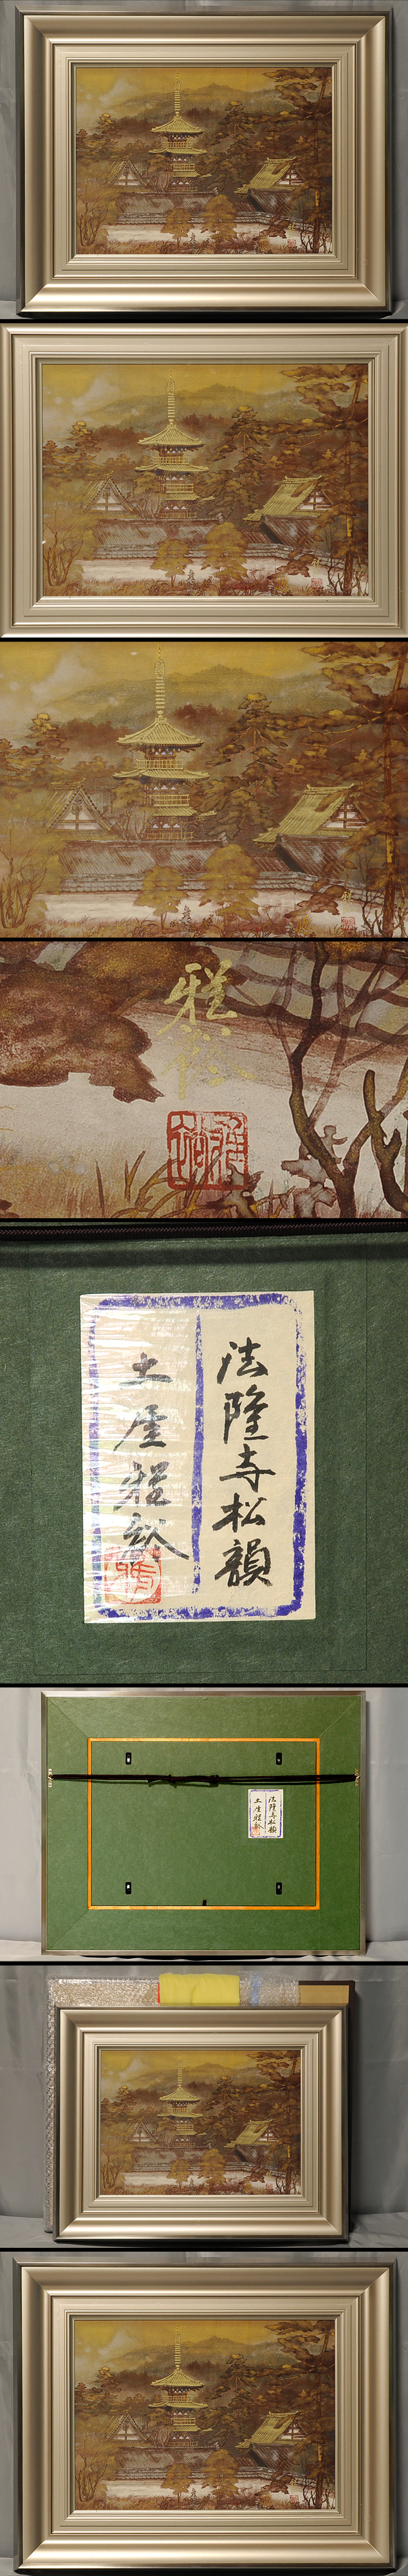 雅
法隆寺松韻
土屋雅
法隆寺松韻
土屋雅